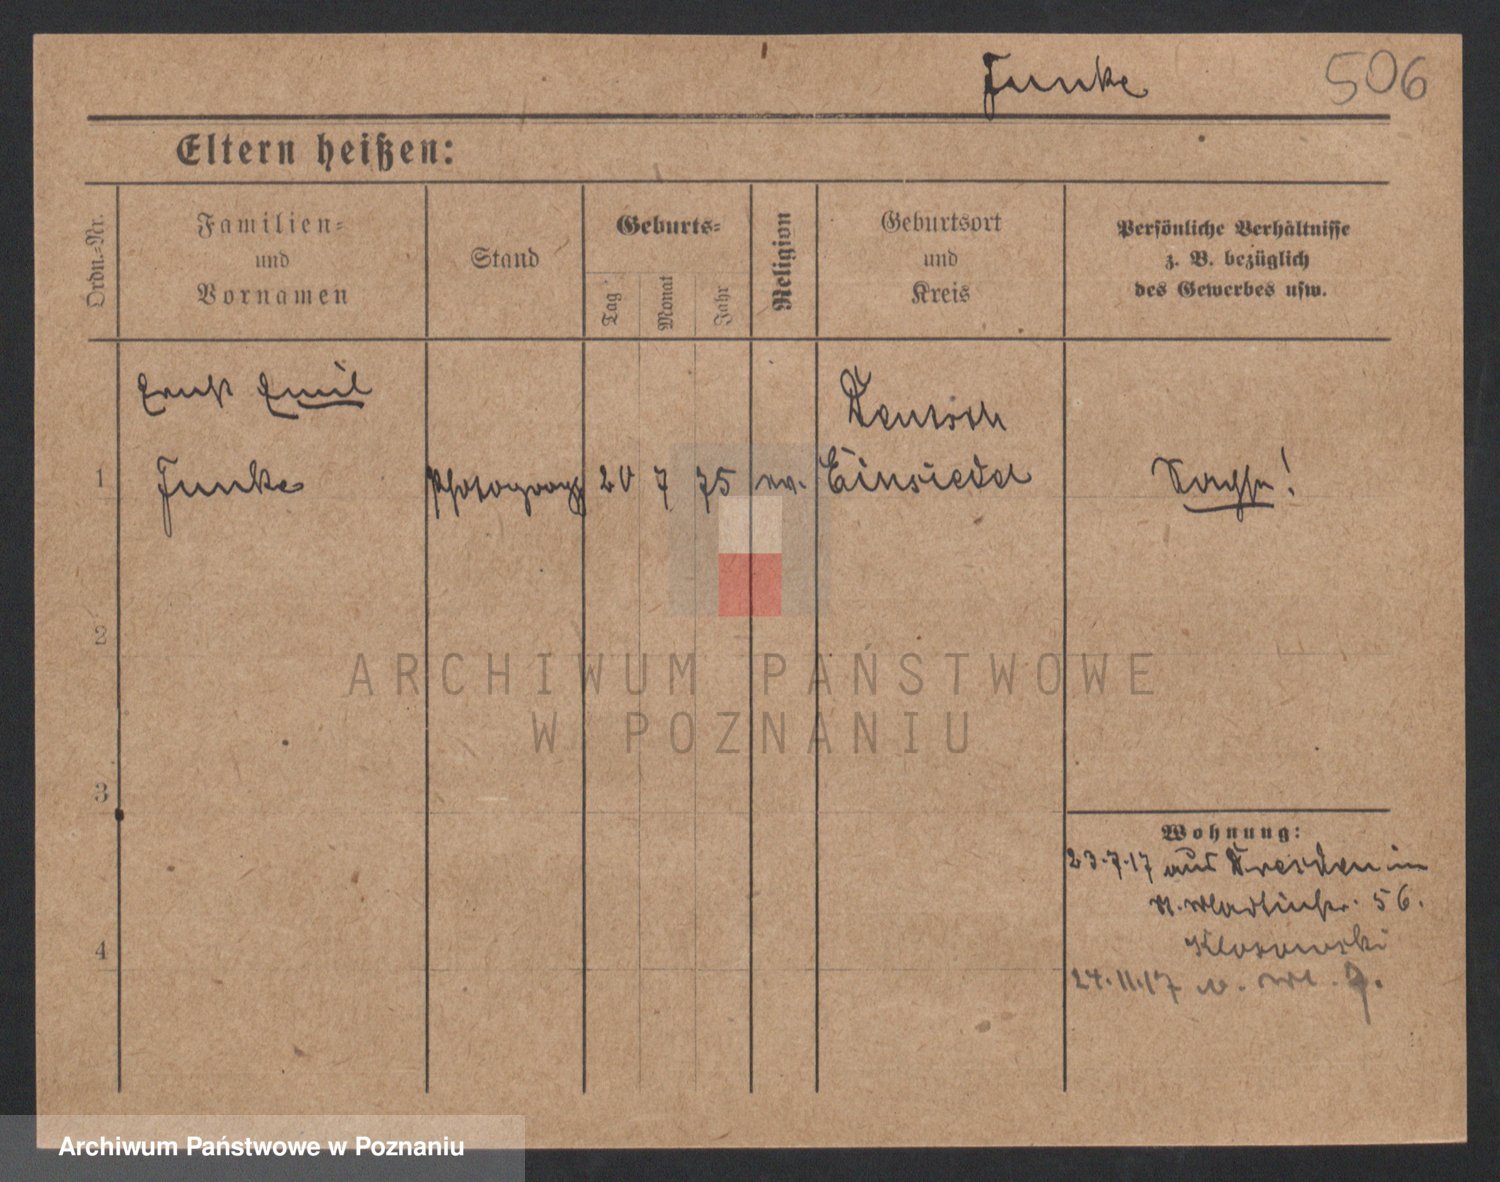 Junke 506
Eltern heißen:
Ordn.-Nr.
Familien-
und
Vornamen
Stand
Geburts-
Tag
Monat
Jahr
Religion
Geburtsort
und
Kreis
Persönliche Verhältnisse
z. B. bezüglich
des Gewerbes usw.
Ernst Emil
Deutsch
1 Junke Photograph 20 7 75 ev. Einsiedel Sachse!
2
ARCHIWUM PAŃSTWOWE
W POZNANIU
3
Wohnung:
23.7.17 aus Dresden in
St. Martinstr. 56.
Klosowski
4
24.11.17
Archiwum Państwowe w Poznaniu